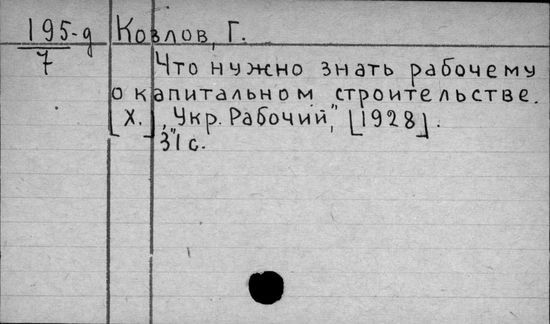 195-д Козлов, Г.
7 Что нужно знать рабочему
о капитальном строительстве.
[Х.] „Укр. Рабочий", [1928].
31 с.